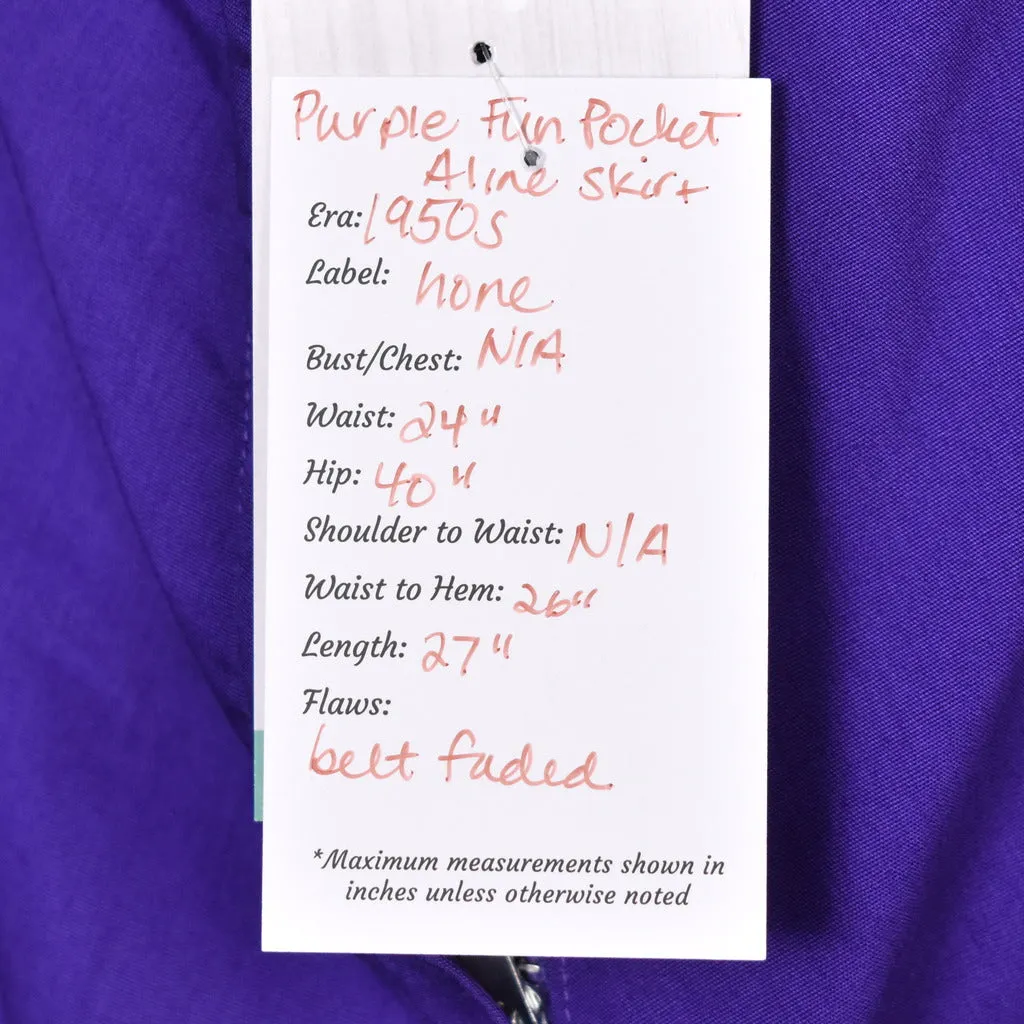 Purple Fun Pocket
Aline skirt
Era: 1950s
Label: none
Bust/Chest: N/A
Waist: 24"
Hip: 40"
Shoulder to Waist: N/A
Waist to Hem: 26"
Length: 27"
Flaws:
belt faded
*Maximum measurements shown in
inches unless otherwise noted